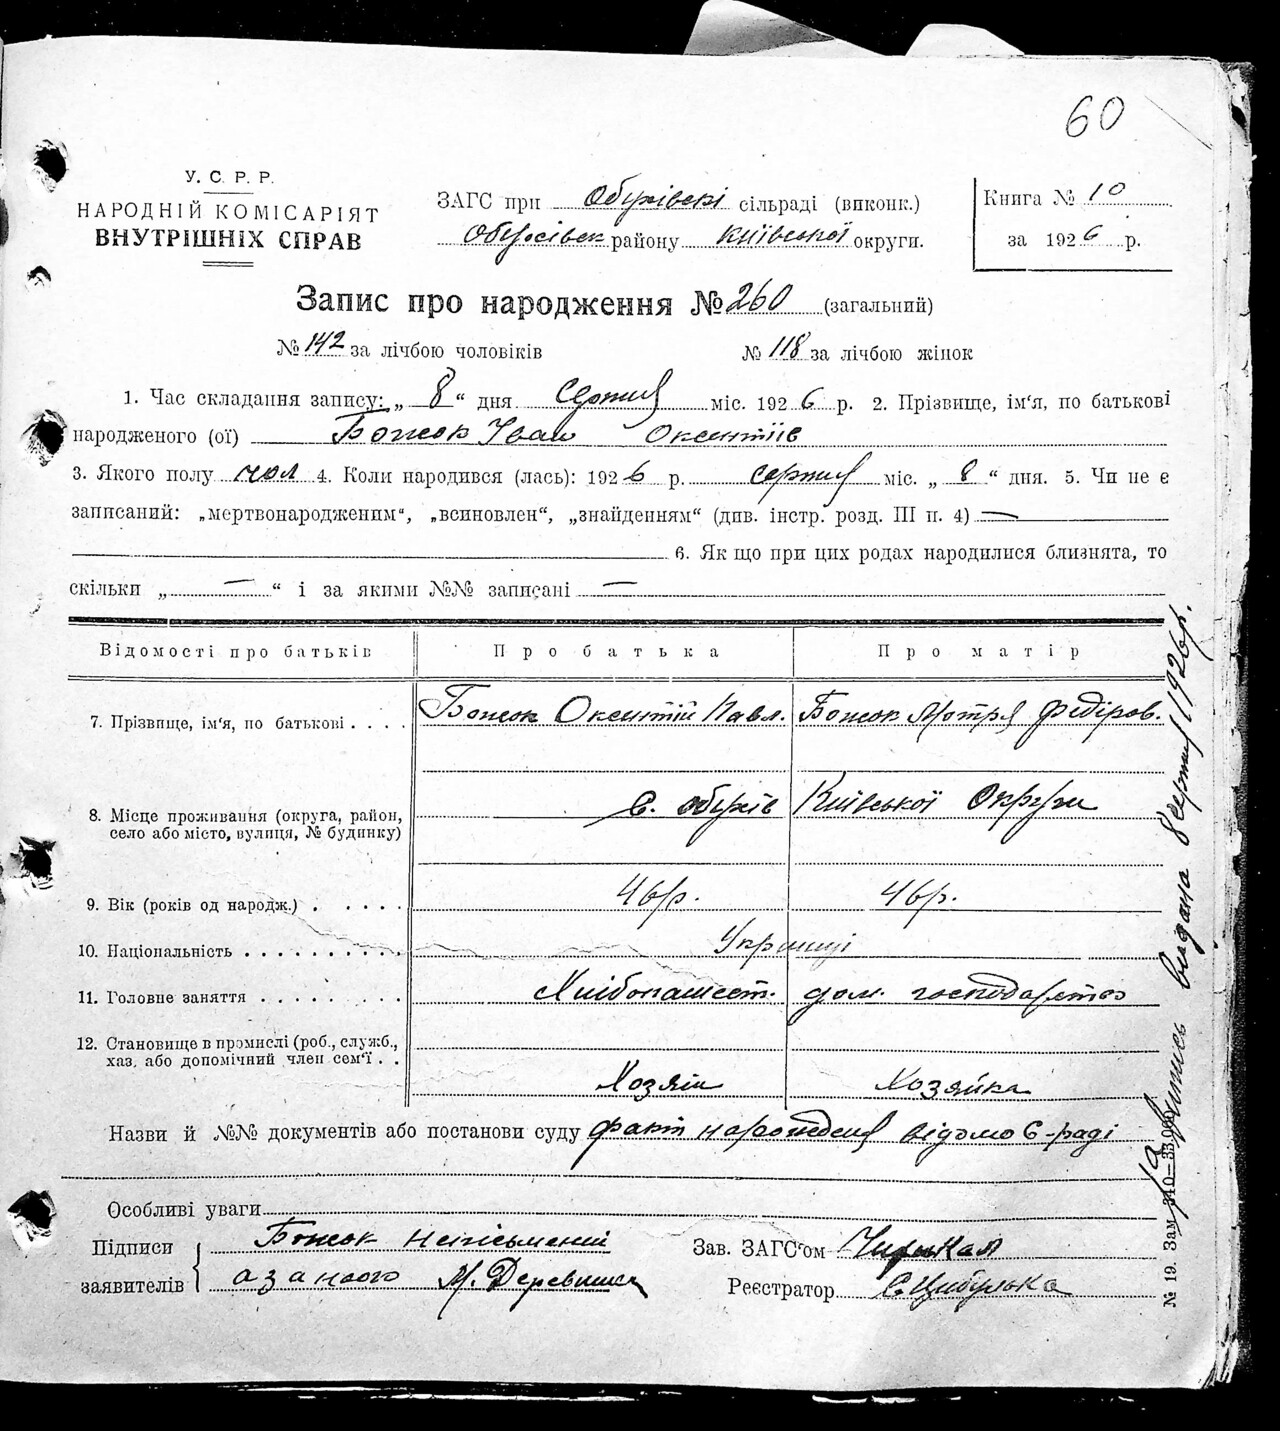 60
У. С. Р. Р.
НАРОДНІЙ КОМІСАРІЯТ
ВНУТРІШНІХ СПРАВ
ЗАГС при Обухівські сільраді (виконк.)
Обухівськ району Київської округи.
Книга № 10
за 1926 р.
Запис про народження № 260 (загальний)
№ 142 за лічбою чоловіків № 118 за лічбою жінок
1. Час складання запису: „ 8 “ дня Серпня міс. 1926 р. 2. Прізвище, ім'я, по батькові
народженого (ої) Божок Іван Оксентіїв
3. Якого полу чол 4. Коли народився (лась): 1926 р. серпня міс. „ 8 “ дня. 5. Чи не є
записаний: „мертвонародженим“, „всиновлен“, „знайденням“ (див. інстр. розд. III п. 4) —
6. Як що при цих родах народилися близнята, то
скільки „ — “ і за якими №№ записані —
Відомості про батьків Про батька Про матір
7. Прізвище, ім'я, по батькові . . . . Божок Оксентій Павл. Божок Мотря Федіров.
8. Місце проживання (округа, район, село або місто, вулиця, № будинку) с. Обухів Київської Округи
9. Вік (років од народж.) . . . . . 46р. 46р.
10. Національність . . . . . . . . . . Українці
11. Головне заняття . . . . . . . . . Хлібопашест. дом. господарство
12. Становище в промислі (роб., служб., хаз. або допомічний член сем'ї . . Хозяїн Хозяйка
Назви й №№ документів або постанови суду факт народження відомо С-раді
Особливі уваги
Підписи заявителів Божок неписьменій
а за нього М. Деревянк
Зав. ЗАГС'ом
Реєстратор С Цибулька
№ 19. Зам 310—33.000
Випись видана 8 серпня 1926р.